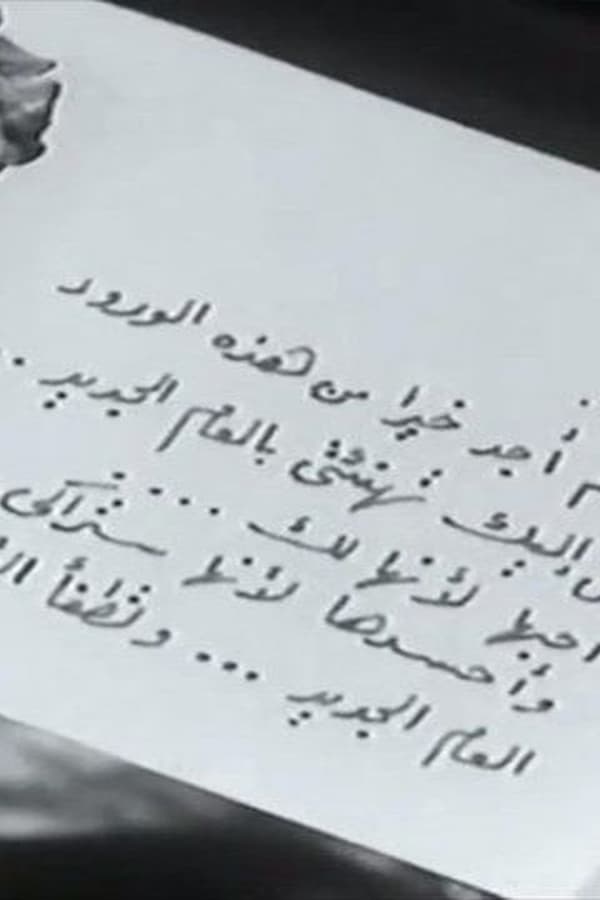 أجد خيرا من هذه الورود
إليك تهنئتى بالعام الجديد ..
احبها لأنها لك ....
وأحسدها لأنها ستراكى
العام الجديد ... وتطفأ